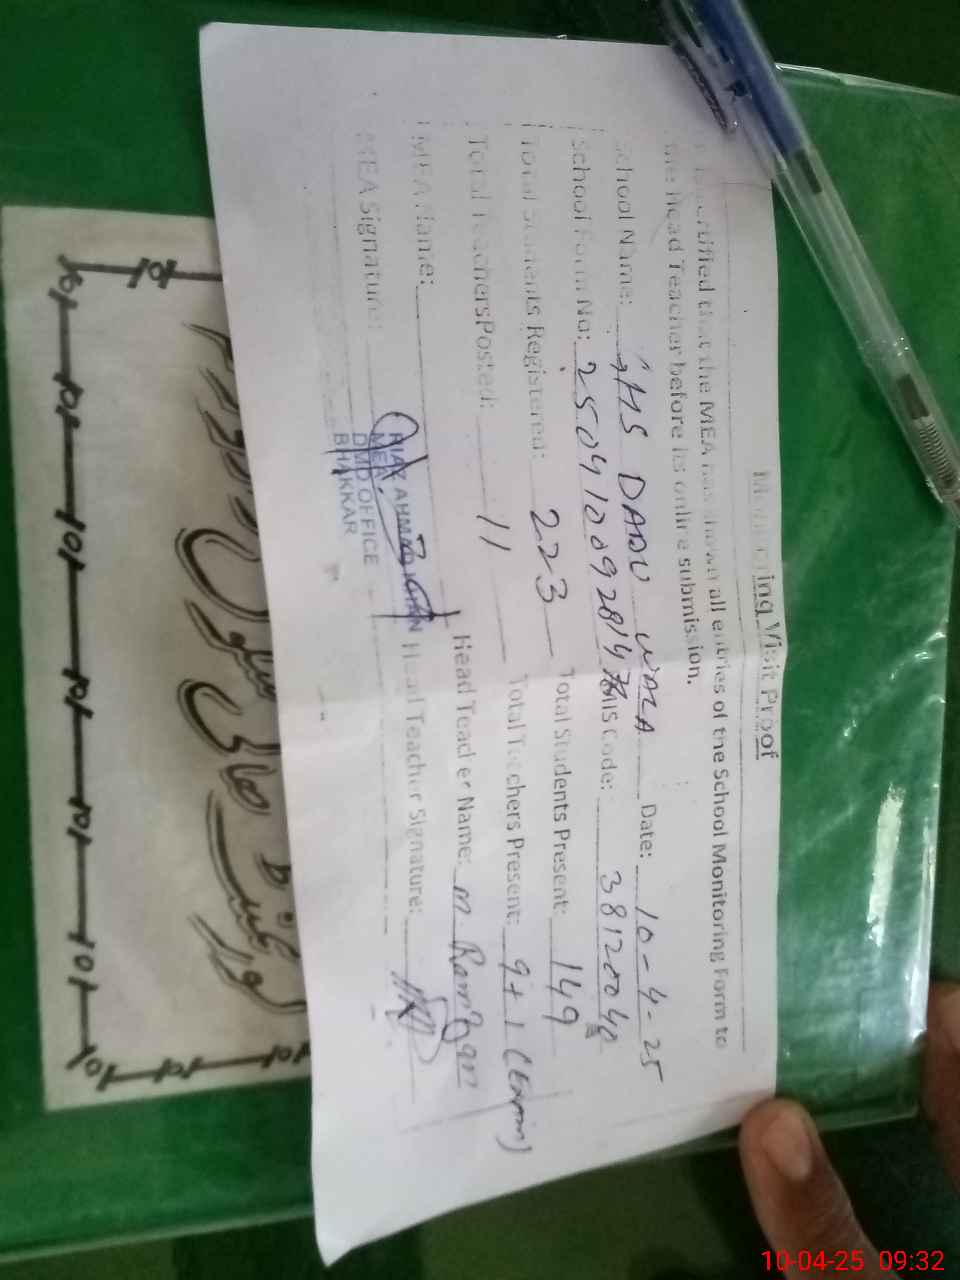 Monitoring Visit Proof
certified that the MEA has shown all entries of the School Monitoring Form to
the Head Teacher before its online submission.
School Name: GHS DADU WALA Date: 10-4-25
School Form No: Code: 38120040
Total Students Registered: 223 Total Students Present: 149
Total Teachers Posted: 11 Total Teachers Present: 9+1 (Exam)
MEA Name: Head Teacher Name: M. Ramzan
MEA Signature: Head Teacher Signature:
RIAZ AHMAD KHAN
MEA
DMO OFFICE
BHAKKAR
10-04-25 09:32